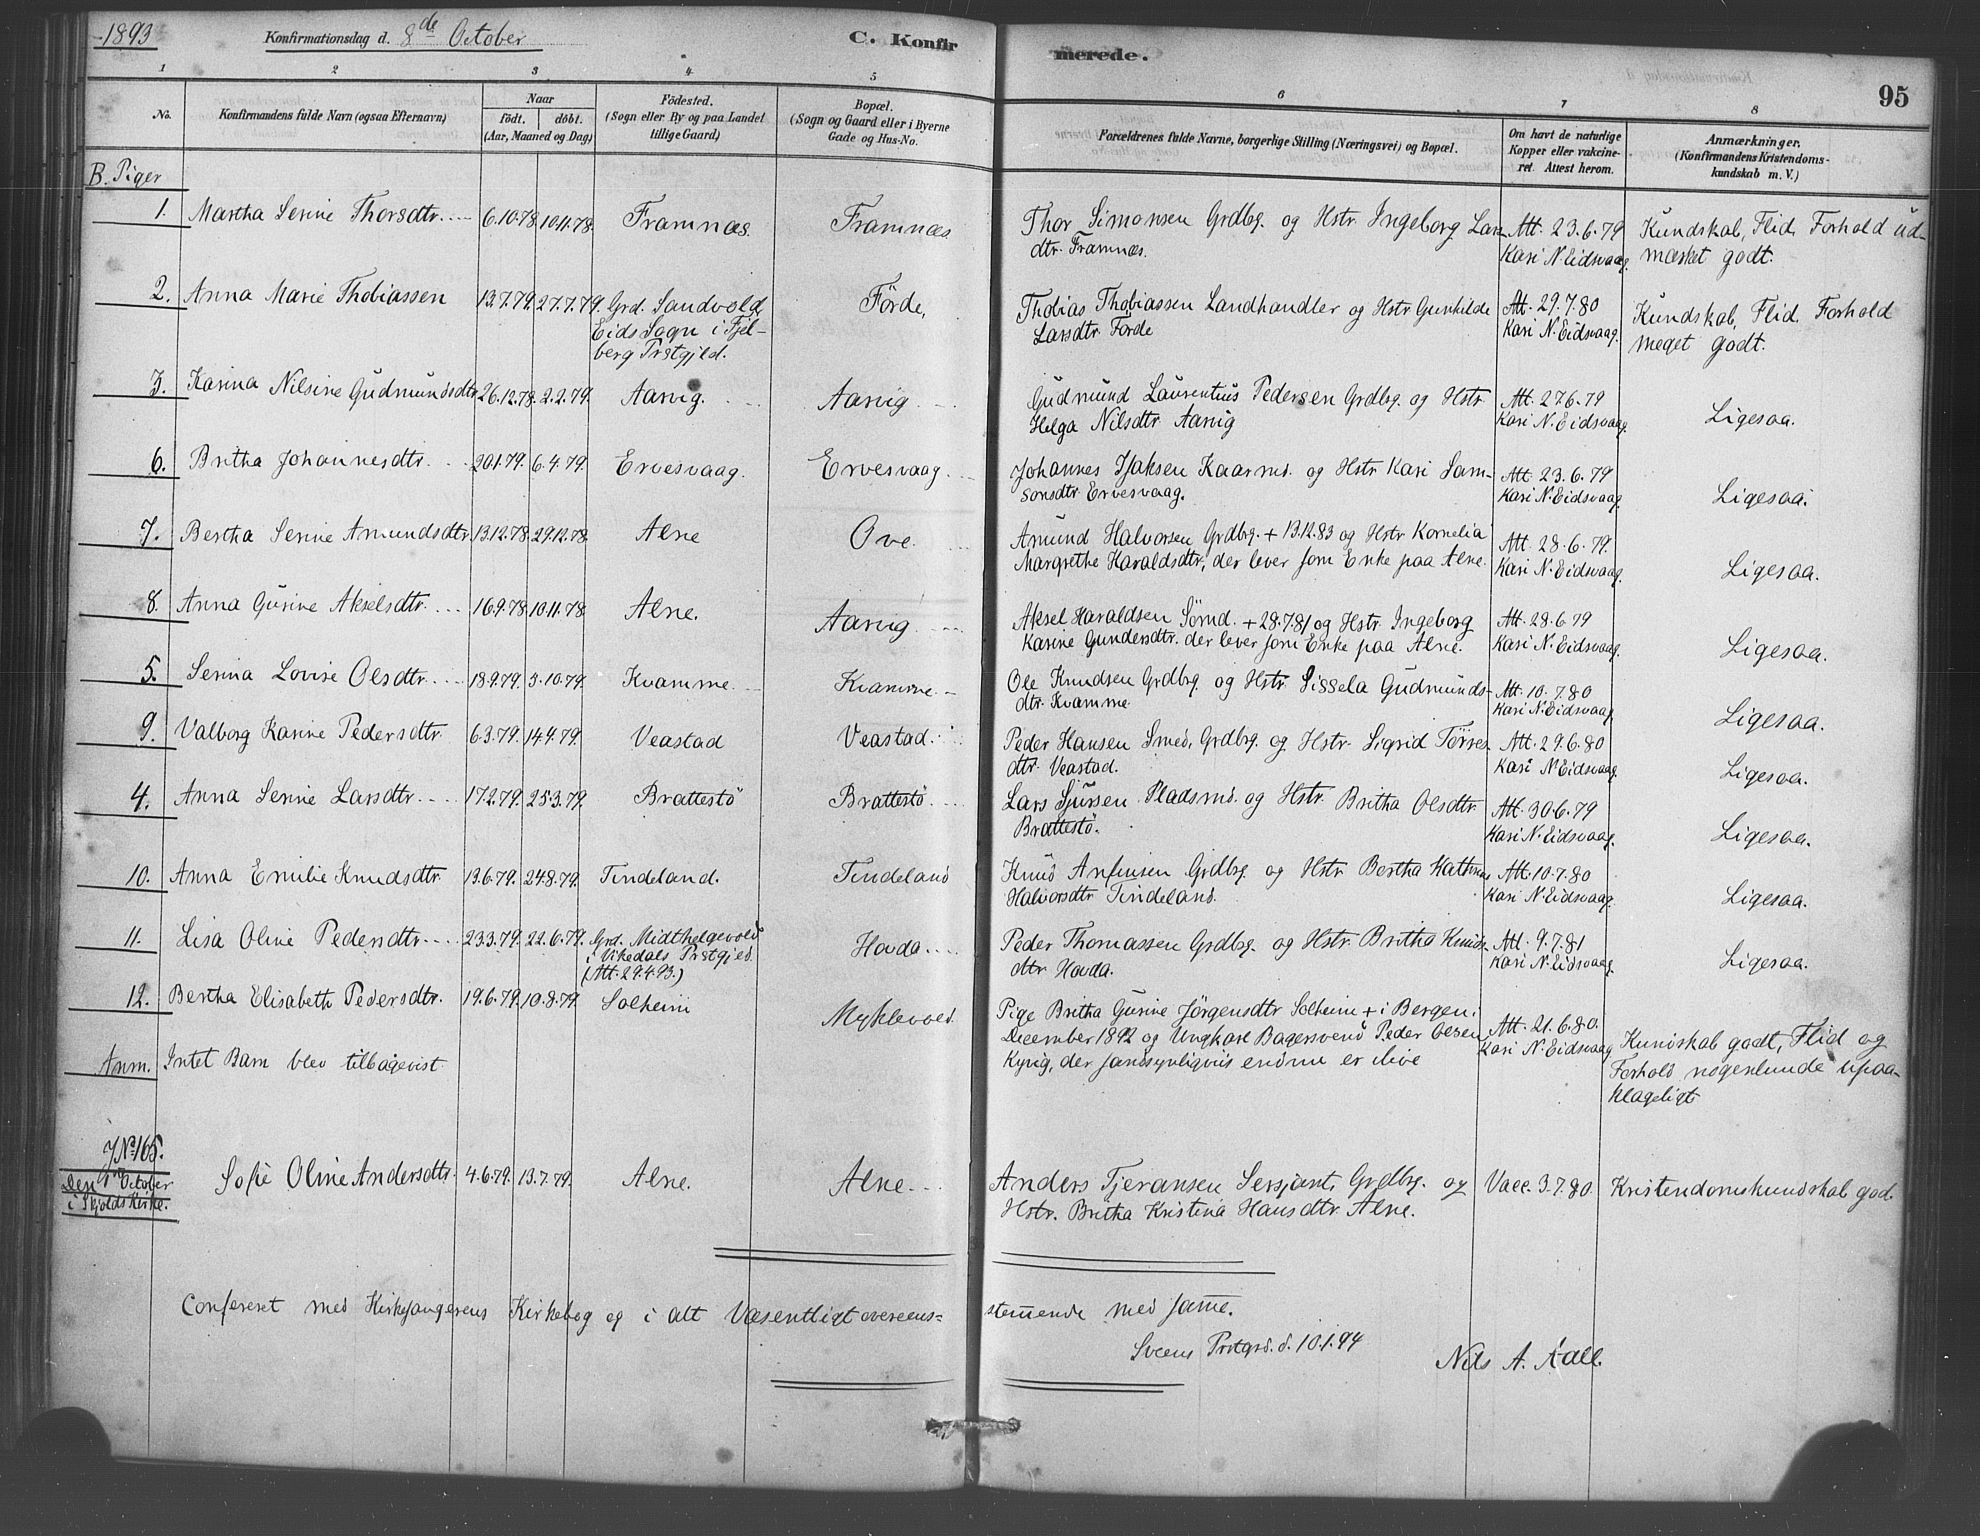 1893 Konfirmationsdag d. 8de October C. Konfirmerede. 95
1 2 3 4 5 6 7 8
No. Konfirmandens fulde Navn (ogsaa Efternavn) Naar födt. döbt. (Aar, Maaned og Dag) Födested. (Sogn eller By og paa Landet tillige Gaard) Bopæl. (Sogn og Gaard eller i Byerne Gade og Hus-No. Forældrenes fulde Navne, borgerlige Stilling (Næringsvei) og Bopæl. Om havt de naturlige Kopper eller vakcineret. Attest herom. Anmærkninger. (Konfirmandens Kristendomskundskab m. V.)
B. Piger
1. Martha Serine Thorsdtr. 6.10.78. 10.11.78. Framnæs. Framnæs. Thor Simonsen Grdbg. og Hstr. Ingeborg Lars- Att. 23.6.79 Kundskab, Flid, Forhold ud-
dtr. Framnæs. Kari N. Eidsvaag. mærket godt.
2. Anna Marie Thobiassen 13.7.79. 27.7.79. Grd. Sandvold, Förde, Thobias Thobiassen Landhandler og Hstr. Gunhilde Att. 29.7.80 Kundskab, Flid, Forhold
Eids Sogn i Fjel- Larsdtr. Förde Kari N. Eidsvaag. meget godt.
berg Prstgjld.
3. Karina Nilsine Gudmundsdtr. 26.12.78. 2.2.79. Aarvig. Aarvig. Gudmund Laurentius Pedersen Grdbg. og Hstr. Att. 27.6.79 Ligesaa.
Helga Nilsdtr. Aarvig Kari N. Eidsvaag.
6. Britha Johannesdtr. 20.1.79. 6.4.79. Ervesvaag. Ervesvaag. Johannes Isaksen Kaarmd. og Hstr. Kari Sam- Att. 23.6.79 Ligesaa.
sonsdtr. Ervesvaag. Kari N. Eidsvaag.
7. Bertha Serine Amundsdtr. 13.12.78. 29.12.78. Alne Ove. Amund Halvorsen Grdbg. + 13.12.83 og Hstr. Kornelia Att. 28.6.79. Ligesaa.
Margrethe Haraldsdtr., der lever som Enke paa Alne. Kari N. Eidsvaag.
8. Anna Gurine Akselsdtr. 16.9.78. 10.11.78. Alne. Aarvig. Aksel Haraldsen Sömd. + 28.7.81 og Hstr. Ingeborg Att. 28.6.79 Ligesaa.
Karine Gundersdtr. der lever som Enke paa Alne. Kari N. Eidsvaag.
5. Serina Lovise Olsdtr. 18.9.79. 5.10.79. Kvamme. Kvamme. Ole Knudsen Grdbg. og Hstr. Sissela Gudmunds- Att. 10.7.80 Ligesaa.
dtr. Kvamme. Kari N. Eidsvaag.
9. Valborg Karine Pedersdtr. 6.3.79. 14.4.79. Veastad Veastad. Peder Hansen Smed, Grdbg. og Hstr. Sigrid Törres- Att. 29.6.80 Ligesaa.
dtr. Veastad. Kari N. Eidsvaag.
4. Anna Serine Larsdtr. 17.2.79. 25.3.79. Brattestö Brattestö. Lars Sjursen Pladsmd. og Hstr. Britha Olsdtr. Att. 30.6.79 Ligesaa.
Brattestö. Kari N. Eidsvaag.
10. Anna Emilie Knudsdtr. 13.6.79. 24.8.79. Tindeland. Tindeland Knud Anfinsen Grdbg. og Hstr. Bertha Kathrina Att. 10.7.80 Ligesaa.
Halvorsdtr. Tindeland. Kari N. Eidsvaag.
11. Lisa Oline Pedersdtr. 23.3.79. 22.6.79. Grd. Midthelgevold Hovda. Peder Thomassen Grdbg. og Hstr. Britha Knuds- Att. 9.7.81 Ligesaa.
i Vikedals Prstgjeld. dtr. Hovda. Kari N. Eidsvaag.
(Att. 29.4.93.)
12. Bertha Elisabeth Pedersdtr. 19.6.79. 10.8.79. Solheim Myklevold. Pige Britha Gurine Jörgensdtr. Solheim + i Bergen i Att. 21.6.80. Kundskab godt, Flid og
December 1892 og Ungkarl Bagersvend Peder Olsen Kari N. Eidsvaag. Forhold nogenlunde upaa-
Kyvig, der sandsynligviis endnu er ilive klageligt
Anm. Intet Barn blev tilbagevist.
J No 165.
Den 1ste October Sofie Oline Andersdtr. 4.6.79. 13.7.79. Alne. Alne. Anders Tjeransen Sersjant, Grdbg. og Vacc. 3.7.80 Kristendomskundskab god.
i Skjolds Kirke. Hstr. Britha Kristina Hansdtr. Alne.
Confereret med Kirkesangerens Kirkebog og i alt Væsentligt overeens= stemmende med samme.
Sveens Prstgrd. d. 10.1.94 Nils A. Aall.